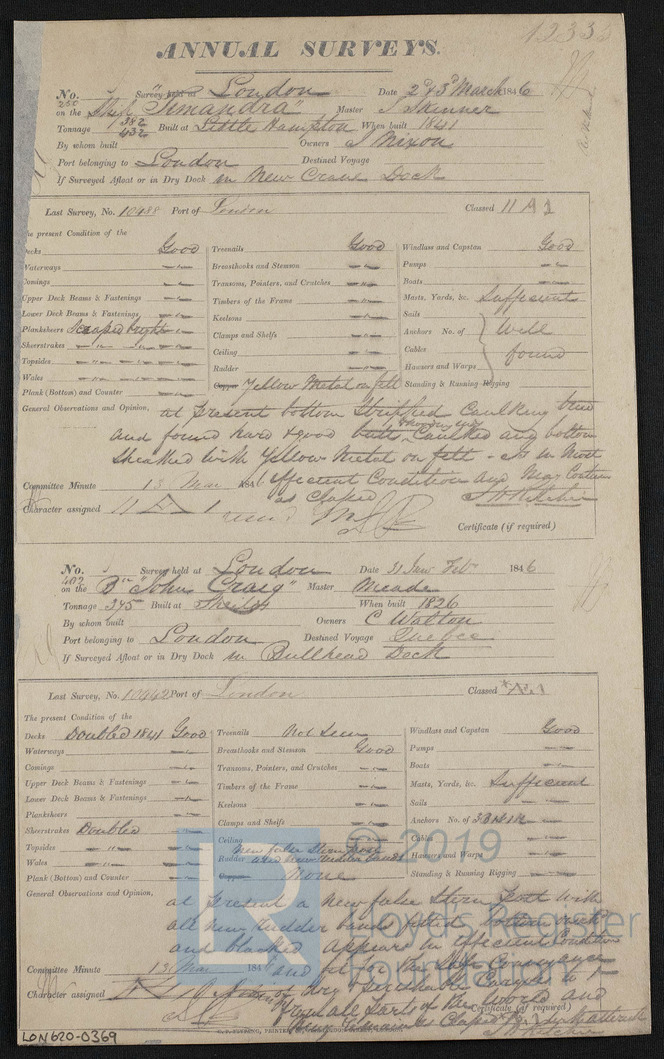 12335
ANNUAL SURVEYS.
No. Survey held at London Date 2 & 3 March 1846
250 on the Ship "Timandra" Master J Skinner
Tonnage 382 432 Built at Little Hampton When built 1841
By whom built Owners J Nixon
Port belonging to London Destined Voyage
If Surveyed Afloat or in Dry Dock in New Crane Dock
Last Survey, No. 10488 Port of London Classed 11 A 1
The present Condition of the
Decks Good Treenails Good Windlass and Capstan Good
Waterways Breasthooks and Stemson Pumps
Comings Transoms, Pointers, and Crutches Boats
Upper Deck Beams & Fastenings Timbers of the Frame Masts, Yards, &c. Sufficient
Lower Deck Beams & Fastenings Keelsons Sails
Planksheers Scraped bright Clamps and Shelfs Anchors No. of Well
Sheerstrakes Ceiling Cables found
Topsides Rudder Hawsers and Warps
Wales Copper Yellow Metal on felt Standing & Running Rigging
Plank (Bottom) and Counter
General Observations and Opinion, at present bottom Stripped Caulking tried
and found hard & good Caulked and bottom
Sheathed with Yellow Metal on felt - is in Most
Committee Minute 13 Mar 1846 Effecient Condition and May Continue
Character assigned as Classed
Certificate (if required)
No. Survey held at London Date 31 Jan Feby 1846
402 on the Bn "John Craig" Master Meade
Tonnage 345 Built at Shields When built 1826
By whom built Owners C Walton
Port belonging to London Destined Voyage Quebec
If Surveyed Afloat or in Dry Dock in Bullhead Dock
Last Survey, No. 10442 Port of London Classed *Æ1
The present Condition of the
Decks Doubled 1841 Good Treenails Not Seen Windlass and Capstan Good
Waterways Breasthooks and Stemson Good Pumps
Comings Transoms, Pointers, and Crutches Boats
Upper Deck Beams & Fastenings Timbers of the Frame Masts, Yards, &c. Sufficient
Lower Deck Beams & Fastenings Keelsons Sails
Planksheers Clamps and Shelfs Anchors No. of
Sheerstrakes Doubled Ceiling Cables
Topsides new false Stern post
Wales Rudder and new rudder bands Hawsers and Warps
Plank (Bottom) and Counter Copper None Standing & Running Rigging
General Observations and Opinion, at present a new false Stern post with
all new rudder bands fitted bottom
and blacked appears in effecient Condition
Committee Minute 13 Mar 1846 and fit for the Safe Conveyance
Character assigned of Dry & perishable Cargoes to &
from all parts of the World and
Certificate (if required)
© 2019
Lloyd's Register
Foundation
LR
LON620-0369